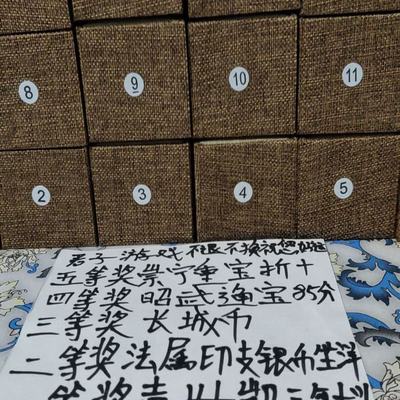 8 9 10 11
2 3 4 5
君子游戏 不退不换祝您好运
五等奖崇宁重宝折十
四等奖 昭武通宝85分
三等奖 长城币
二等奖法属印支银币坐洋
等奖